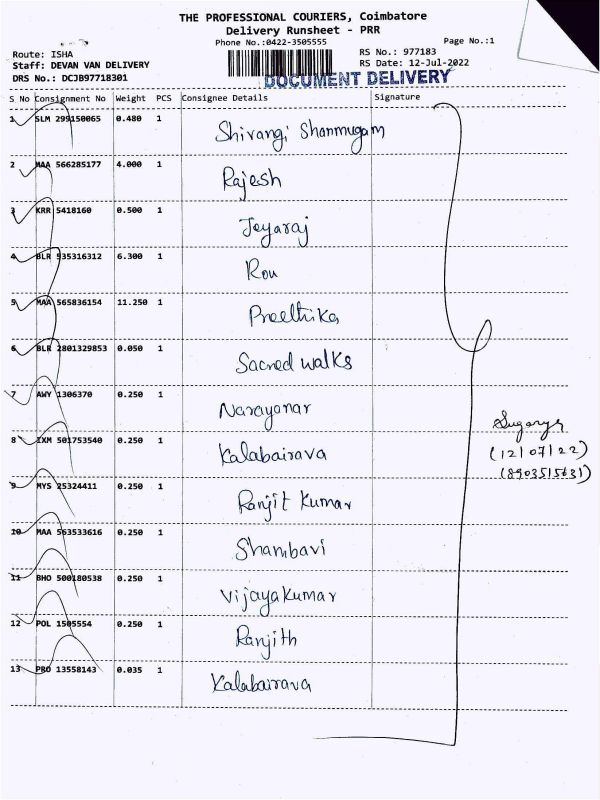 THE PROFESSIONAL COURIERS, Coimbatore
Delivery Runsheet - PRR
Phone No.:0422-3505555
Page No.:1
Route: ISHA
RS No.: 977183
Staff: DEVAN VAN DELIVERY
RS Date: 12-Jul-2022
DRS No.: DCJB97718301
DOCUMENT DELIVERY
S No Consignment No Weight PCS Consignee Details Signature
1 SLM 299150065 0.480 1 Shivangi Shanmugam
2 MAA 566285177 4.000 1 Rajesh
3 KRR 5418160 0.500 1 Jeyaraj
4 BLR 535316312 6.300 1 Rou
5 MAA 565836154 11.250 1 Preethika
6 BLR 2801329853 0.050 1 Sacred walks
7 AWY 1306370 0.250 1 Narayanar
8 IXM 501753540 0.250 1 Kalabairava
9 MYS 25324411 0.250 1 Ranjit Kumar
10 MAA 563533616 0.250 1 Shambavi
11 BHO 500180538 0.250 1 Vijayakumar
12 POL 1505554 0.250 1 Ranjith
13 PRO 13558143 0.035 1 Kalabairava
(12/07/22)
(8903515631)